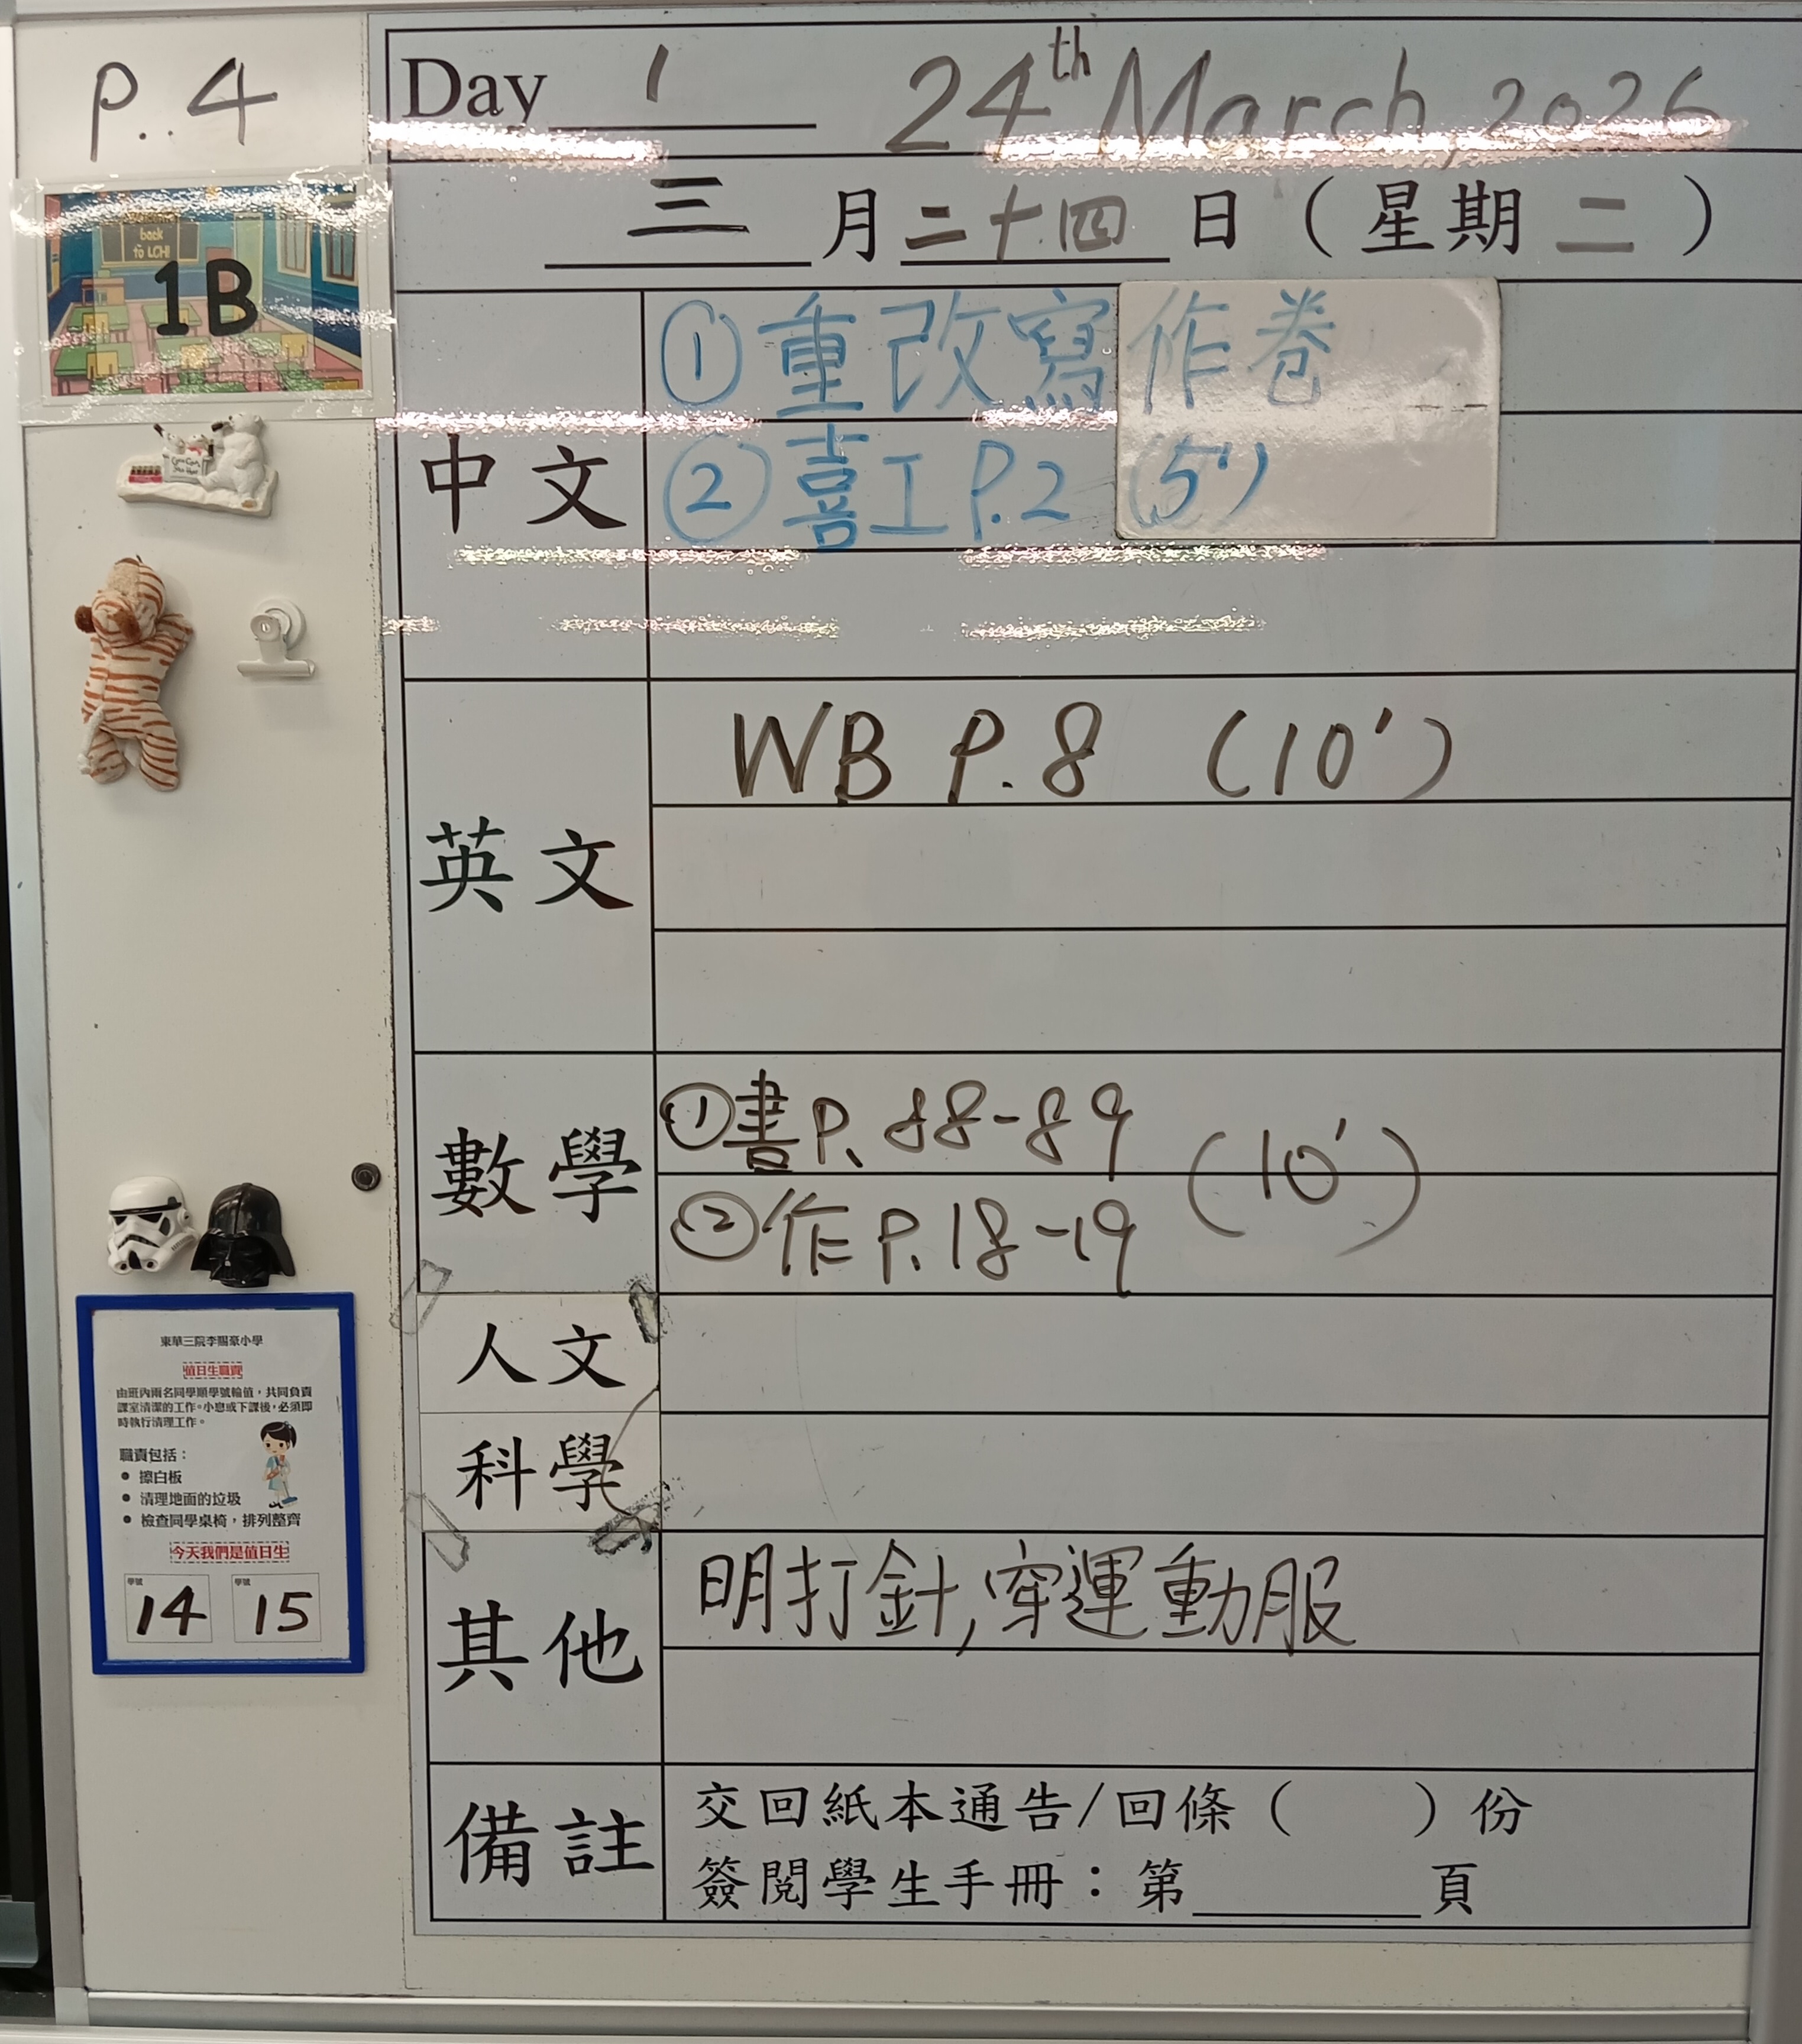 P.4
Day 1 24th March, 2026
三月二十四日（星期二）
back
to LCH!
1B
中文
①重改寫作卷
②喜工P.2 (5')
英文
WB P.8 (10')
數學
①書P. 88-89
②作P.18-19
(10')
人文
科學
其他
明打針,穿運動服
備註
交回紙本通告/回條（ ）份
簽閱學生手冊：第______頁
東華三院李賜豪小學
值日生職責
由班內兩名同學順學號輪值，共同負責
課室清潔的工作。小息或下課後，必須即
時執行清理工作。
職責包括：
● 擦白板
● 清理地面的垃圾
● 檢查同學桌椅，排列整齊
今天我們是值日生
學號 14 學號 15